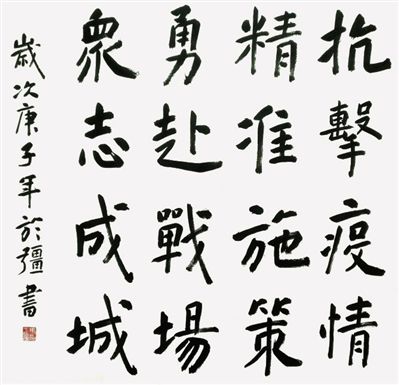 抗擊疫情
精准施策
勇赴戰場
眾志成城
歲次庚子年於彊書